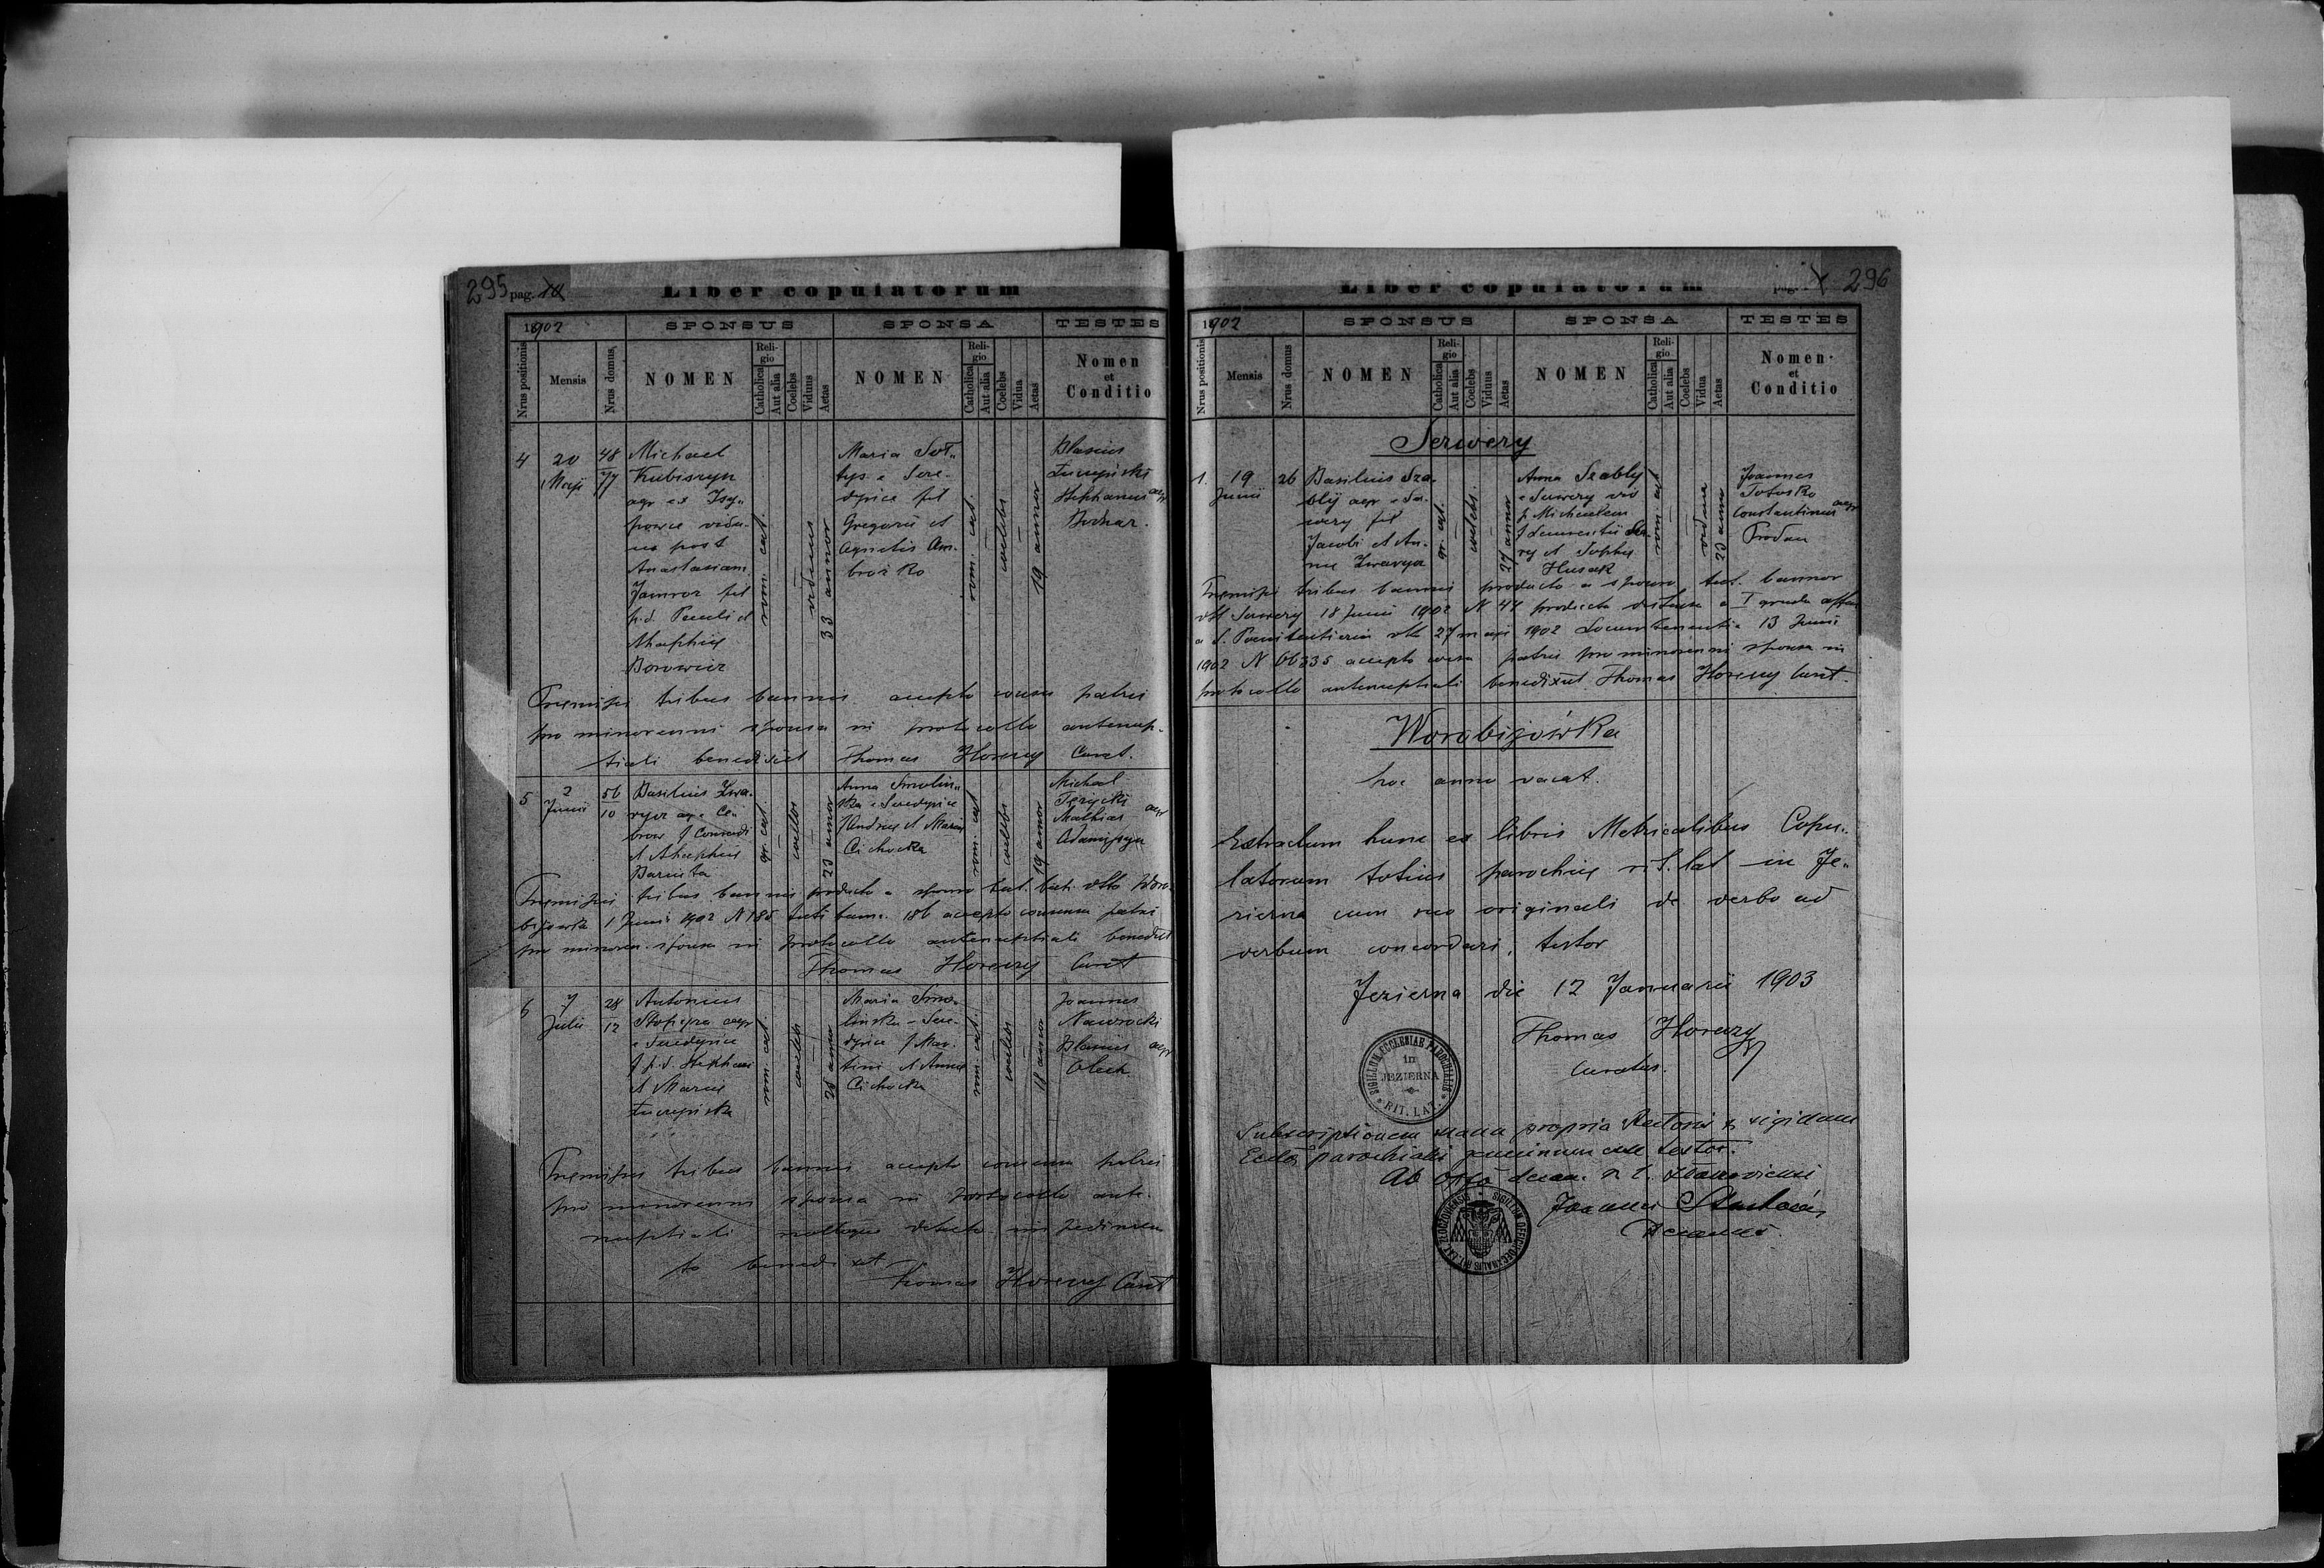 295 pag.
Liber copulatorum
1902
SPONSUS
SPONSA
TESTES
Nrus positionis
Mensis
Nrus domus
NOMEN
Religio
Catholica
Aut alia
Coelebs
Viduus
Aetas
NOMEN
Religio
Catholica
Aut alia
Coelebs
Vidua
Aetas
Nomen
et
Conditio
4
20
Maji
48
77
Michael
Kubiszyn
agr ex
powce vidu-
us post
Anastasiam
Jamroz fil
p.d. Pauli et
Ahaphiae
Borowicz
rom. cat.
viduus
33 annor
Maria Soł-
tys e Sere-
dyńce fil
Gregorii et
Agnetis Am-
brozko
rom. cat.
coelebs
19 annor
Blasius
Stephanus agr
Bodnar.
Praemissis tribus bannis accepto consensu patris
pro minorenni sponsa in protocollo antenup-
tiali benedixit Thomas Horeczy Curat.
5
2
Junii
56
10
Basilius Zwa-
rycz agr e Ce-
brow f Conradi
et Ahaphiae
gr. cat.
coelebs
23 annor
Anna Smolin-
ska e Seredyńce
f Andreae et Mariae
Cichocka
rom. cat
coelebs
19 annor
Michael
Mathias agr
Praemissis tribus bannis producto a sponso test. bapt. dtto Woro-
bijowka 1 Junii 1902 N 185 testi bann. 186 accepto consensu patris
pro minoren. sponsa in protocollo antenuptiali benedixit
Thomas Horeczy Curat
6
7
Julii
28
12
Antonius
agr
e Seredyńce
f p.d. Stephani
et Mariae
rom. cat.
coelebs
annor
Maria Smo-
linska e Sere-
dyńce f Mar-
tini et Annae
Cichocka
rom. cat.
coelebs
18 annor
Joannes
Nawrocki
Blasius agr
Olech
Praemissis tribus bannis accepto consensu patris
pro minorenni sponsa in protocollo ante-
nuptiali nulloque detecto impedimen-
to benedixit
Thomas Horeczy Curat
Liber copulatorum
pag. 296
1902
SPONSUS
SPONSA
TESTES
Nrus positionis
Mensis
Nrus domus
NOMEN
Religio
Catholica
Aut alia
Coelebs
Viduus
Aetas
NOMEN
Religio
Catholica
Aut alia
Coelebs
Vidua
Aetas
Nomen
et
Conditio
Serwery
1.
19
Junii
26
Basilius Sza-
blij agr e Ser-
wery fil
Jacobi et An-
nae Zwarycz
gr. cat.
coelebs.
27 annor
Anna Szablij
e Serwery vid
p. Michaelem
f Laurentii
et Sophiae
Husak
rom. cat
vidua
23 annor
Joannes
Constantinus agr
Prodan
Praemissis tribus bannis producto a sponso test. bannor
dtt Serwery 18 Junii 1902 N 44 producta dispensa a I gradu
a S. Poenitentiaria dtt 27 maji 1902 Locumtenentia 13 Junii
1902 N 66335 accepto consen patris pro minorenni sponsa in
protocollo antenuptiali benedixit Thomas Horeczy Curat.
Worobijówka
hoc anno vacat.
Extractum hunc ex libris Metricalibus Copu-
latorum totius parochiae r. lat in Je-
zierna cum suo originali de verbo ad
verbum concordari, testor
Jezierna die 12 Januarii 1903
Thomas Horeczy
Curatus.
SIGILLUM ECCLESIAE PAROCHIALIS
in
JEZIERNA
RIT. LAT.
Subscriptionem manu propria Rectoris & sigillum
Eccl parochialis genuinum esse testor.
Ab Offo decan. r. l.
Joannes
Decanus.
SIGILLUM OFFICII DECANALIS RIT. LAT. ZLOCZOVIENSIS